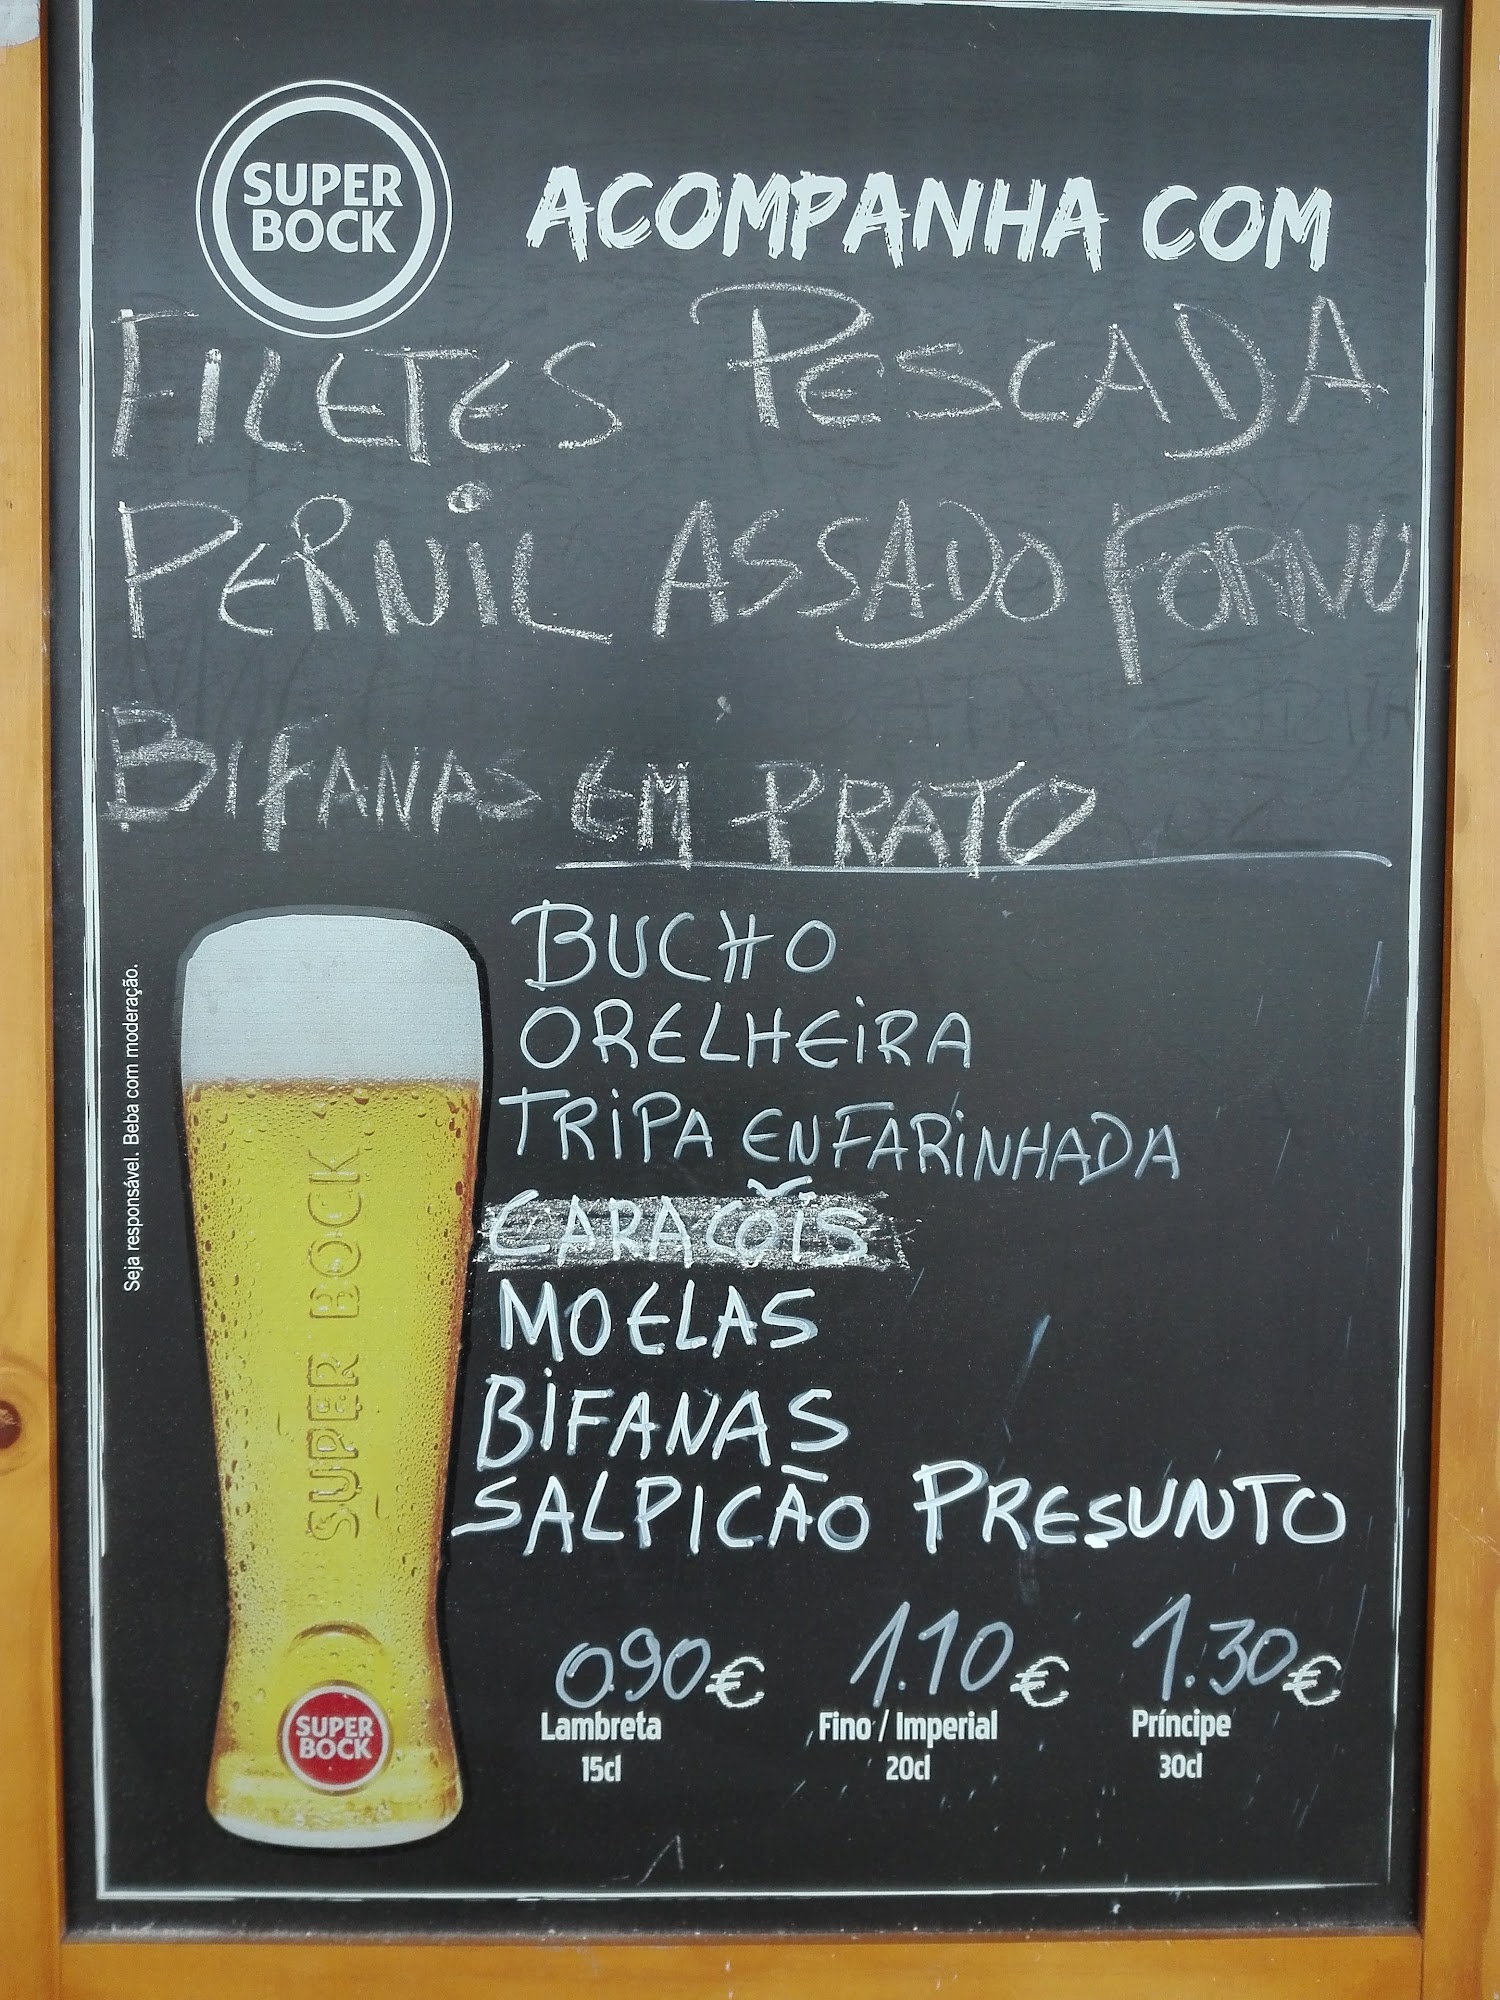 SUPER
BOCK
ACOMPANHA COM
FILETES PESCADA
PERNIL ASSADO FORNO
BIFANAS EM PRATO
BUCHO
ORELHEIRA
TRIPA ENFARINHADA
CARACÓIS
MOELAS
BIFANAS
SALPICÃO PRESUNTO
0.90€ 1.10€ 1.30€
Lambreta Fino / Imperial Príncipe
15cl 20cl 30cl
Seja responsável. Beba com moderação.
SUPER BOCK
SUPER
BOCK